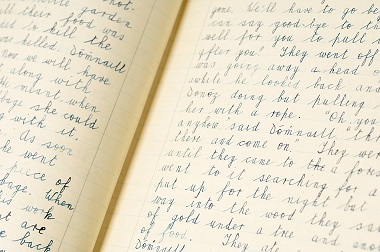 hot.
little garden
all their food was
to kill the
was killed. Domnaill
now we will have
along with
he meant when
bage she could
g with it.
As soon
he went
piece of
bage. When
his work
at are
be back
gone. We'll have to go be
can say good-bye to th
well for you to pull
after you! They went off
was going away a head o
while he looked back and
Donog doing but pulling
her with a rope. "Oh, you
anyhow said Domnaill "th
there and come on." They wer
until they came to the a fores
went to it searching for a
put up for the night but
way into the wood they sa
of gold under a tree and
of food. They ate
Domnaill